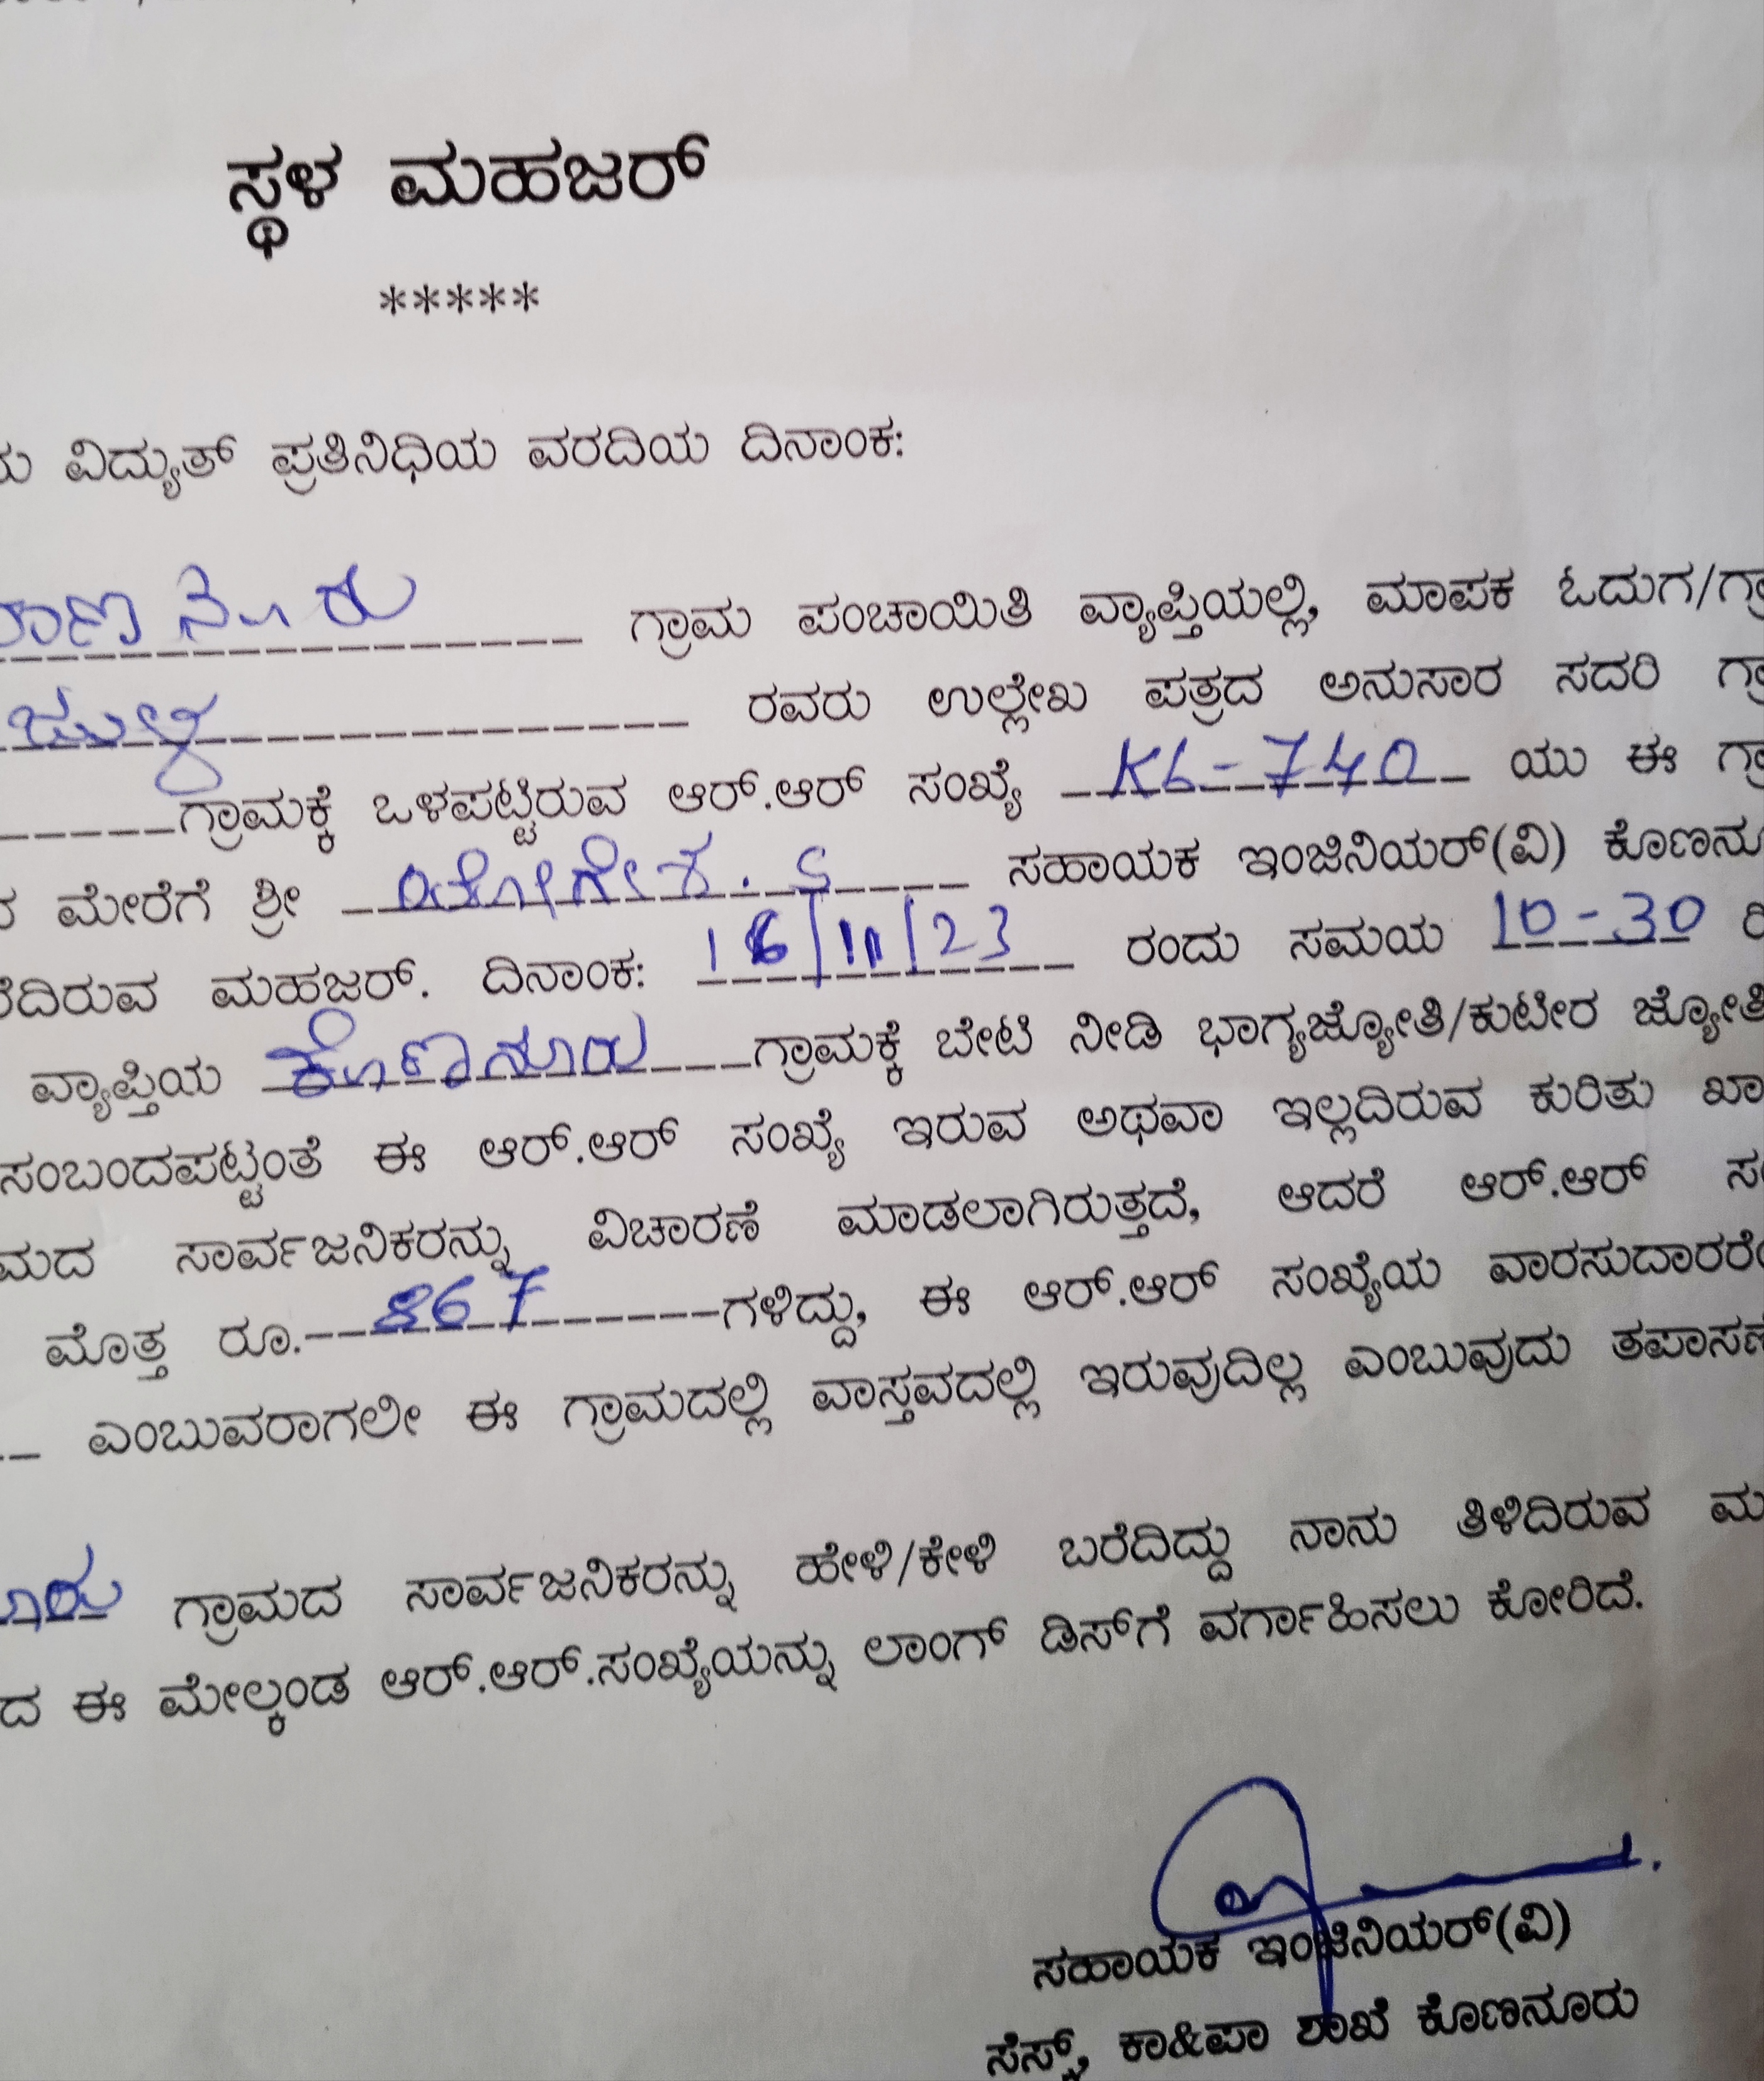 ಸ್ಥಳ ಮಹಜರ್
*****
ವಿದ್ಯುತ್ ಪ್ರತಿನಿಧಿಯ ವರದಿಯ ದಿನಾಂಕ:
ಗ್ರಾಮ ಪಂಚಾಯಿತಿ ವ್ಯಾಪ್ತಿಯಲ್ಲಿ, ಮಾಪಕ ಓದುಗ/ಗ್ರಾ
ರವರು ಉಲ್ಲೇಖ ಪತ್ರದ ಅನುಸಾರ ಸದರಿ ಗ್ರಾ
ಗ್ರಾಮಕ್ಕೆ ಒಳಪಟ್ಟಿರುವ ಆರ್.ಆರ್ ಸಂಖ್ಯೆ KL-740 ಯು ಈ ಗ್ರಾ
ಮೇರೆಗೆ ಶ್ರೀ ಯೋಗೇಶ. S ಸಹಾಯಕ ಇಂಜಿನಿಯರ್(ವಿ) ಕೊಣನೂ
ರೆದಿರುವ ಮಹಜರ್. ದಿನಾಂಕ: 16/11/23 ರಂದು ಸಮಯ 10-30
ವ್ಯಾಪ್ತಿಯ ಕೊಣನೂರು ಗ್ರಾಮಕ್ಕೆ ಬೇಟಿ ನೀಡಿ ಭಾಗ್ಯಜ್ಯೋತಿ/ಕುಟೀರ ಜ್ಯೋತಿ
ಸಂಬಂದಪಟ್ಟಂತೆ ಈ ಆರ್.ಆರ್ ಸಂಖ್ಯೆ ಇರುವ ಅಥವಾ ಇಲ್ಲದಿರುವ ಕುರಿತು ಖಾ
ಮದ ಸಾರ್ವಜನಿಕರನ್ನು ವಿಚಾರಣೆ ಮಾಡಲಾಗಿರುತ್ತದೆ, ಆದರೆ ಆರ್.ಆರ್ ಸ
ಮೊತ್ತ ರೂ. 867 ಗಳಿದ್ದು, ಈ ಆರ್.ಆರ್ ಸಂಖ್ಯೆಯ ವಾರಸುದಾರರೆಂ
ಎಂಬುವರಾಗಲೀ ಈ ಗ್ರಾಮದಲ್ಲಿ ವಾಸ್ತವದಲ್ಲಿ ಇರುವುದಿಲ್ಲ ಎಂಬುವುದು ತಪಾಸಣ
ಗ್ರಾಮದ ಸಾರ್ವಜನಿಕರನ್ನು ಹೇಳಿ/ಕೇಳಿ ಬರೆದಿದ್ದು ನಾನು ತಿಳಿದಿರುವ ಮ
ದ ಈ ಮೇಲ್ಕಂಡ ಆರ್.ಆರ್.ಸಂಖ್ಯೆಯನ್ನು ಲಾಂಗ್ ಡಿಸ್‌ಗೆ ವರ್ಗಾಹಿಸಲು ಕೋರಿದೆ.
ಸಹಾಯಕ ಇಂಜಿನಿಯರ್(ವಿ)
ಸೆಸ್ಕ್, ಕಾ&ಪಾ ಶಾಖೆ ಕೊಣನೂರು